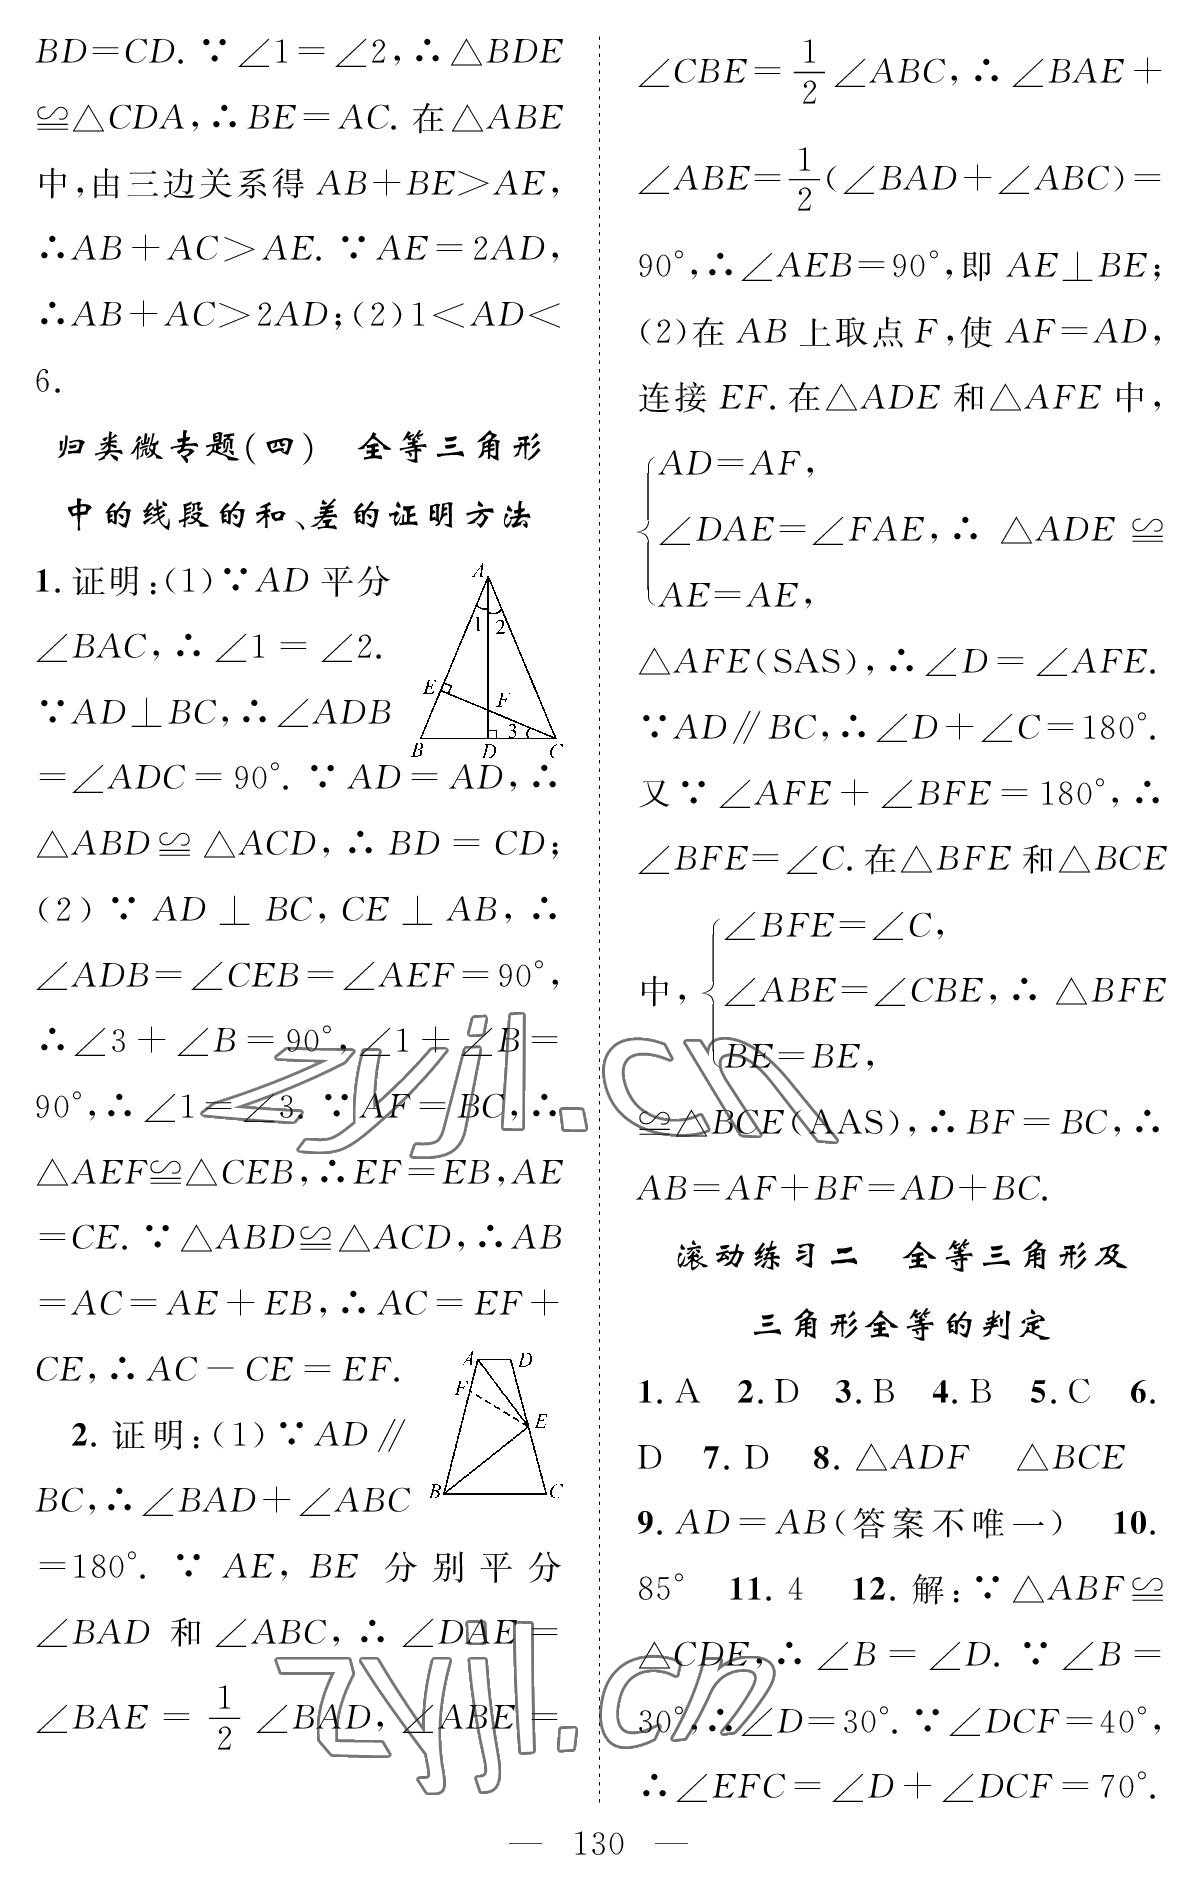 BD=CD. ∵∠1=∠2,∴△BDE
≌△CDA,∴BE=AC. 在△ABE
中,由三边关系得 AB+BE>AE,
∴AB+AC>AE. ∵AE=2AD,
∴AB+AC>2AD;(2)1<AD<
6.
归类微专题(四) 全等三角形
中的线段的和、差的证明方法
1. 证明:(1)∵AD 平分
∠BAC,∴∠1=∠2.
∵AD⊥BC,∴∠ADB
=∠ADC=90°. ∵AD=AD,∴
△ABD≌△ACD,∴BD=CD;
(2)∵AD⊥BC,CE⊥AB,∴
∠ADB=∠CEB=∠AEF=90°,
∴∠3+∠B=90°,∠1+∠B=
90°,∴∠1=∠3. ∵AF=BC,∴
△AEF≌△CEB,∴EF=EB,AE
=CE. ∵△ABD≌△ACD,∴AB
=AC=AE+EB,∴AC=EF+
CE,∴AC-CE=EF.
2. 证明:(1)∵AD∥
BC,∴∠BAD+∠ABC
=180°. ∵AE,BE 分别平分
∠BAD 和∠ABC,∴∠DAE=
∠BAE=1/2∠BAD,∠ABE=
A
1 2
E
F
3
B D C
A D
F
E
B C
∠CBE=1/2∠ABC,∴∠BAE+
∠ABE=1/2(∠BAD+∠ABC)=
90°,∴∠AEB=90°,即 AE⊥BE;
(2)在 AB 上取点 F,使 AF=AD,
连接 EF. 在△ADE 和△AFE 中,
AD=AF,
∠DAE=∠FAE,∴△ADE≌
AE=AE,
△AFE(SAS),∴∠D=∠AFE.
∵AD∥BC,∴∠D+∠C=180°.
又∵∠AFE+∠BFE=180°,∴
∠BFE=∠C. 在△BFE 和△BCE
∠BFE=∠C,
中,{∠ABE=∠CBE,∴△BFE
BE=BE,
≌△BCE(AAS),∴BF=BC,∴
AB=AF+BF=AD+BC.
滚动练习二 全等三角形及
三角形全等的判定
1. A 2. D 3. B 4. B 5. C 6.
D 7. D 8. △ADF △BCE
9. AD=AB(答案不唯一) 10.
85° 11. 4 12. 解:∵△ABF≌
△CDE,∴∠B=∠D. ∵∠B=
30°,∴∠D=30°. ∵∠DCF=40°,
∴∠EFC=∠D+∠DCF=70°.
zyjl.cn
zyjl.cn
— 130 —